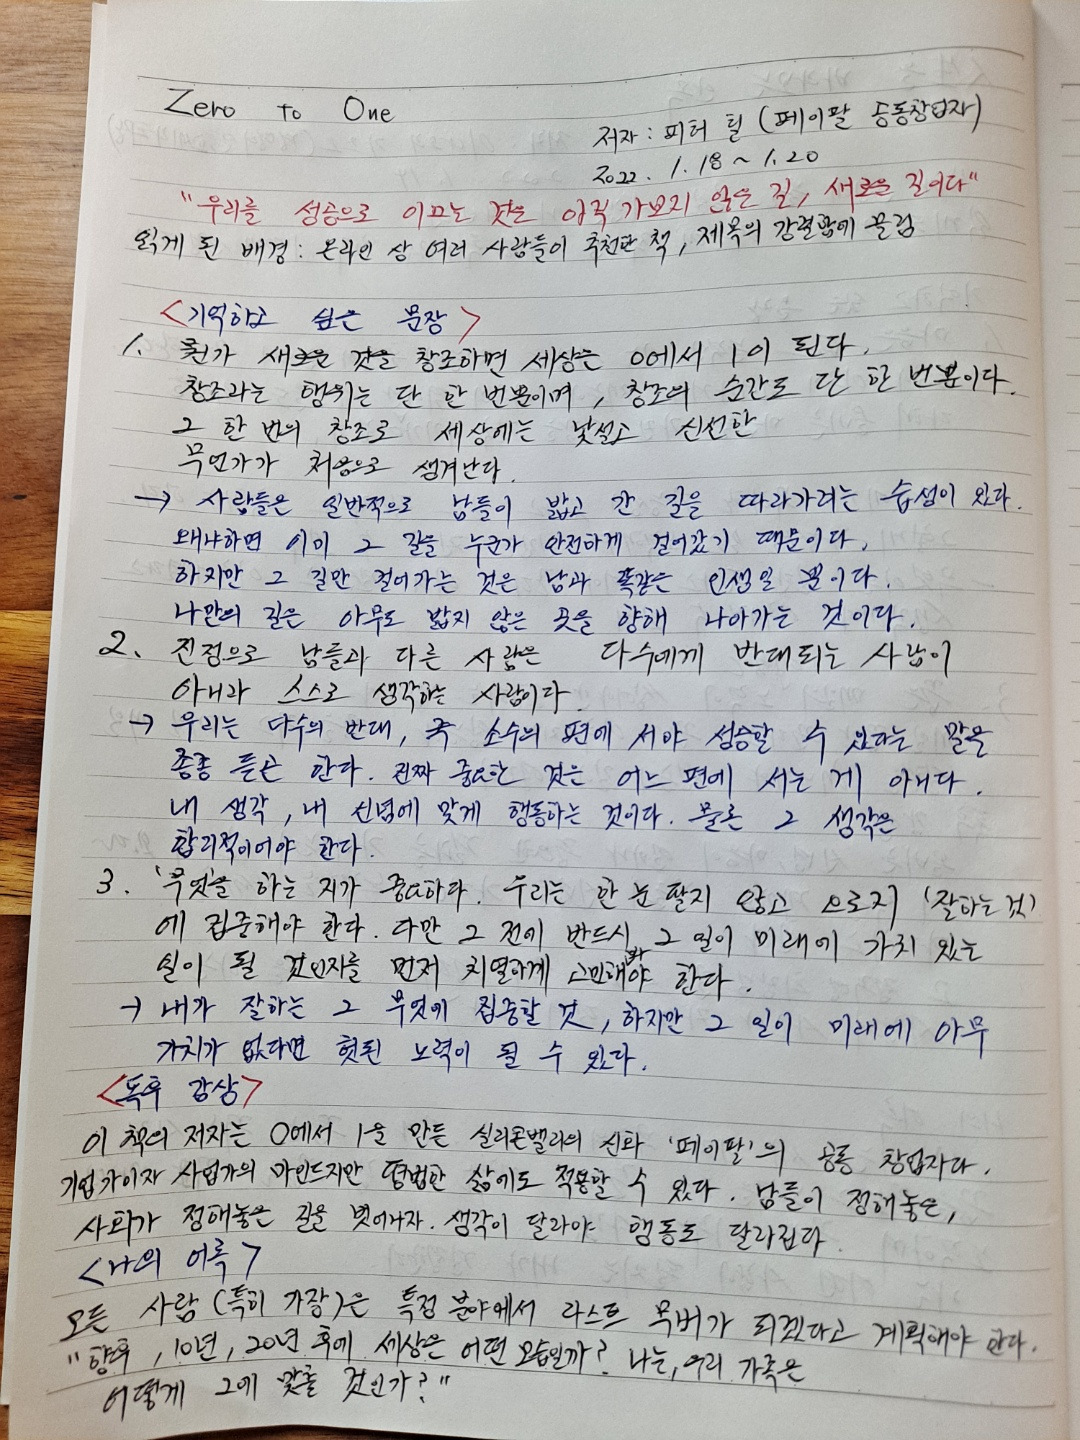 Zero to One
저자 : 피터 틸 (페이팔 공동창업자)
2022. 1.18 ~ 1.20
"우리를 성공으로 이끄는 것은 아직 가보지 않은 길, 새로운 길이다"
읽게 된 배경 : 온라인 상 여러 사람들이 추천한 책, 제목의 강렬함에 끌림
<기억하고 싶은 문장>
1. 뭔가 새로운 것을 창조하면 세상은 0에서 1이 된다.
창조라는 행위는 단 한 번뿐이며, 창조의 순간도 단 한 번뿐이다.
그 한 번의 창조로 세상에는 낯설고 신선한
무언가가 처음으로 생겨난다.
→ 사람들은 일반적으로 남들이 밟고 간 길을 따라가려는 습성이 있다.
왜냐하면 이미 그 길을 누군가 안전하게 걸어갔기 때문이다.
하지만 그 길만 걸어가는 것은 남과 똑같은 인생일 뿐이다.
나만의 길은 아무도 밟지 않은 곳을 향해 나아가는 것이다.
2. 진정으로 남들과 다른 사람은 다수에게 반대되는 사람이
아니라 스스로 생각하는 사람이다
→ 우리는 다수의 반대, 즉 소수의 편에 서야 성공할 수 있다는 말을
종종 듣곤 한다. 진짜 중요한 것은 어느 편에 서는 게 아니다.
내 생각, 내 신념에 맞게 행동하는 것이다. 물론 그 생각은
합리적이어야 한다.
3. '무엇'을 하는 지가 중요하다. 우리는 한 눈 팔지 않고 오로지 '잘하는 것'
에 집중해야 한다. 다만 그 전에 반드시 그 일이 미래에 가치 있는
일이 될 것인지를 먼저 치열하게 고민해봐야 한다.
→ 내가 잘하는 그 무엇에 집중할 것, 하지만 그 일이 미래에 아무
가치가 없다면 헛된 노력이 될 수 있다.
<독후 감상>
이 책의 저자는 0에서 1을 만든 실리콘벨리의 신화 '페이팔'의 공동 창업자다.
기업가이자 사업가의 마인드지만 평범한 삶에도 적용할 수 있다. 남들이 정해놓은,
사회가 정해놓은 길을 벗어나자. 생각이 달라야 행동도 달라진다.
<나의 어록>
모든 사람(특히 가장)은 특정 분야에서 라스트 무버가 되겠다고 계획해야 한다.
"향후, 10년, 20년 후에 세상은 어떤 모습일까? 나는, 우리 가족은
어떻게 그에 맞출 것인가?"